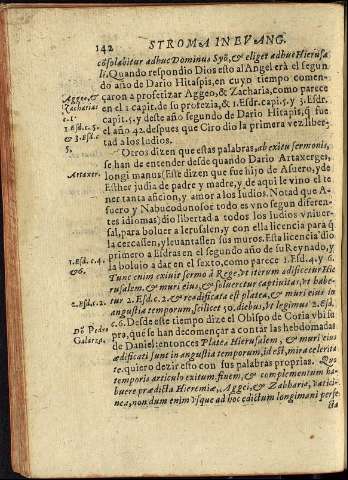 142 STROMA IN EVANG.
cõsolabitur adhuc Dominus Syõ, & eliget adhuc Hierusa
li. Quando respondio Dios esto al Angel erà el segun
do año de Dario Hitaspis, en cuyo tiempo comen-
çaron a profetizar Aggeo, & Zacharia, como parece
en el 1 capit. de su profezia, & 1. Esdr. capi. 5. y 3. Esdr.
capit. 5. y deste año segundo de Dario Hitapis, q̃ fue
el año 42. despues que Ciro dio la primera vez liber-
tad a los Iudios.
Otros dizen que estas palabras, ab exitu sermonis,
se han de entender desde quando Dario Artaxerges,
longi manus (Este dizen que fue hijo de Asuero, y de
Esther judia de padre y madre, y de aqui le vino el te
ner tanta aficion, y amor a los Iudios. Notad que A-
suero y Nabucodonosor todo es vno segun diferen-
tes idiomas) dio libertad a todos los Iudios vniuer-
sal, para boluer a Ierusalen, y con ella licencia para q̃
la cercassen, y leuantassen sus muros. Esta licencia dio
primero a Esdras en el segundo año de su Reynado, y
la boluio a dar en el sexto, como parece 1. Esd. 4. y 6.
Tunc enim exiuit sermo à Rege, vt iterum ædificetur Hie
rusalem, & muri eius, & solueretur captiuitas, vt habe-
tur 2. Esd. c. 2. & readificata est platea, & muri eius in
angustia temporum, scilicet 30. diebus, vt legimus 2. Esd.
c. 6. Desde este tiempo dize el Obispo de Coria vbi su
pra, què se han de començar a contar las hebdomadas
de Daniel: entonces Platea Hierusalem, & muri eius
ædificati sunt in angustia temporum, id est, mira celerita
te. quiero dezir esto con sus palabras proprias. Quo
temporis articulo exitum. finem, & complementum ha-
buere prædicta Hieremiæ, Aggei, & Zabhariæ, vatici-
nea, non dum enim vsque ad hoc edictum longimani perfe
cta
Aggeo, &
Zacharias
c. 1.
1. Esd. c. 5.
& 3. Esd. c
5.
Artaxer.
1. Esd. c. 4.
& 6.
2. Esd. c. 2.
Dõ Pedro
Galarza.